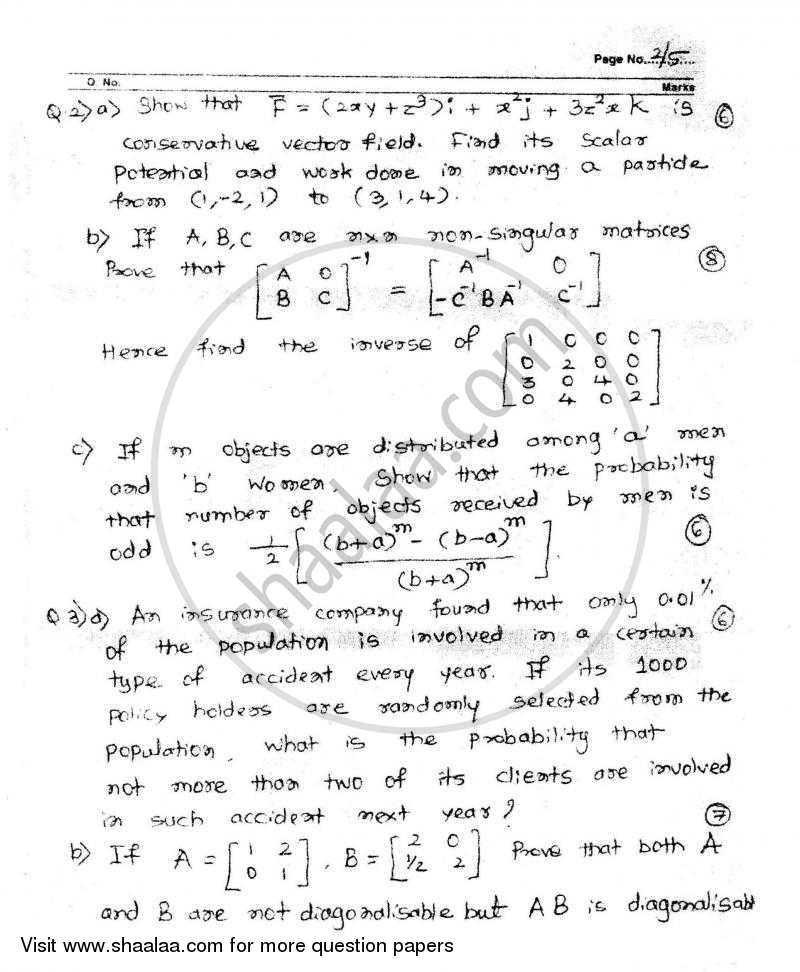 Page No....2/5....
Q No.
Marks
Q 2) a) Show that F̄ = (2xy + z³) i + x² j + 3z²x k is (6)
conservative vector field. Find its scalar
potential and work done in moving a particle
from (1,-2,1) to (3,1,4).
b) If A, B, C are nxn non-singular matrices (8)
Prove that [A 0; B C]⁻¹ = [A⁻¹ 0; -C⁻¹BA⁻¹ C⁻¹]
Hence find the inverse of [1 0 0 0; 0 2 0 0; 3 0 4 0; 0 4 0 2]
c) If m objects are distributed among 'a' men
and 'b' women. Show that the probability
that number of objects received by men is
odd is 1/2 [ ((b+a)^m - (b-a)^m) / (b+a)^m ]. (6)
Q 3) a) An insurance company found that only 0.01% (6)
of the population is involved in a certain
type of accident every year. If its 1000
policy holders are randomly selected from the
population, what is the probability that
not more than two of its clients are involved
in such accident next year? (7)
b) If A = [1 2; 0 1], B = [2 0; 1/2 2] Prove that both A
and B are not diagonalisable but AB is diagonalisabl
shaalaa.com
Visit www.shaalaa.com for more question papers